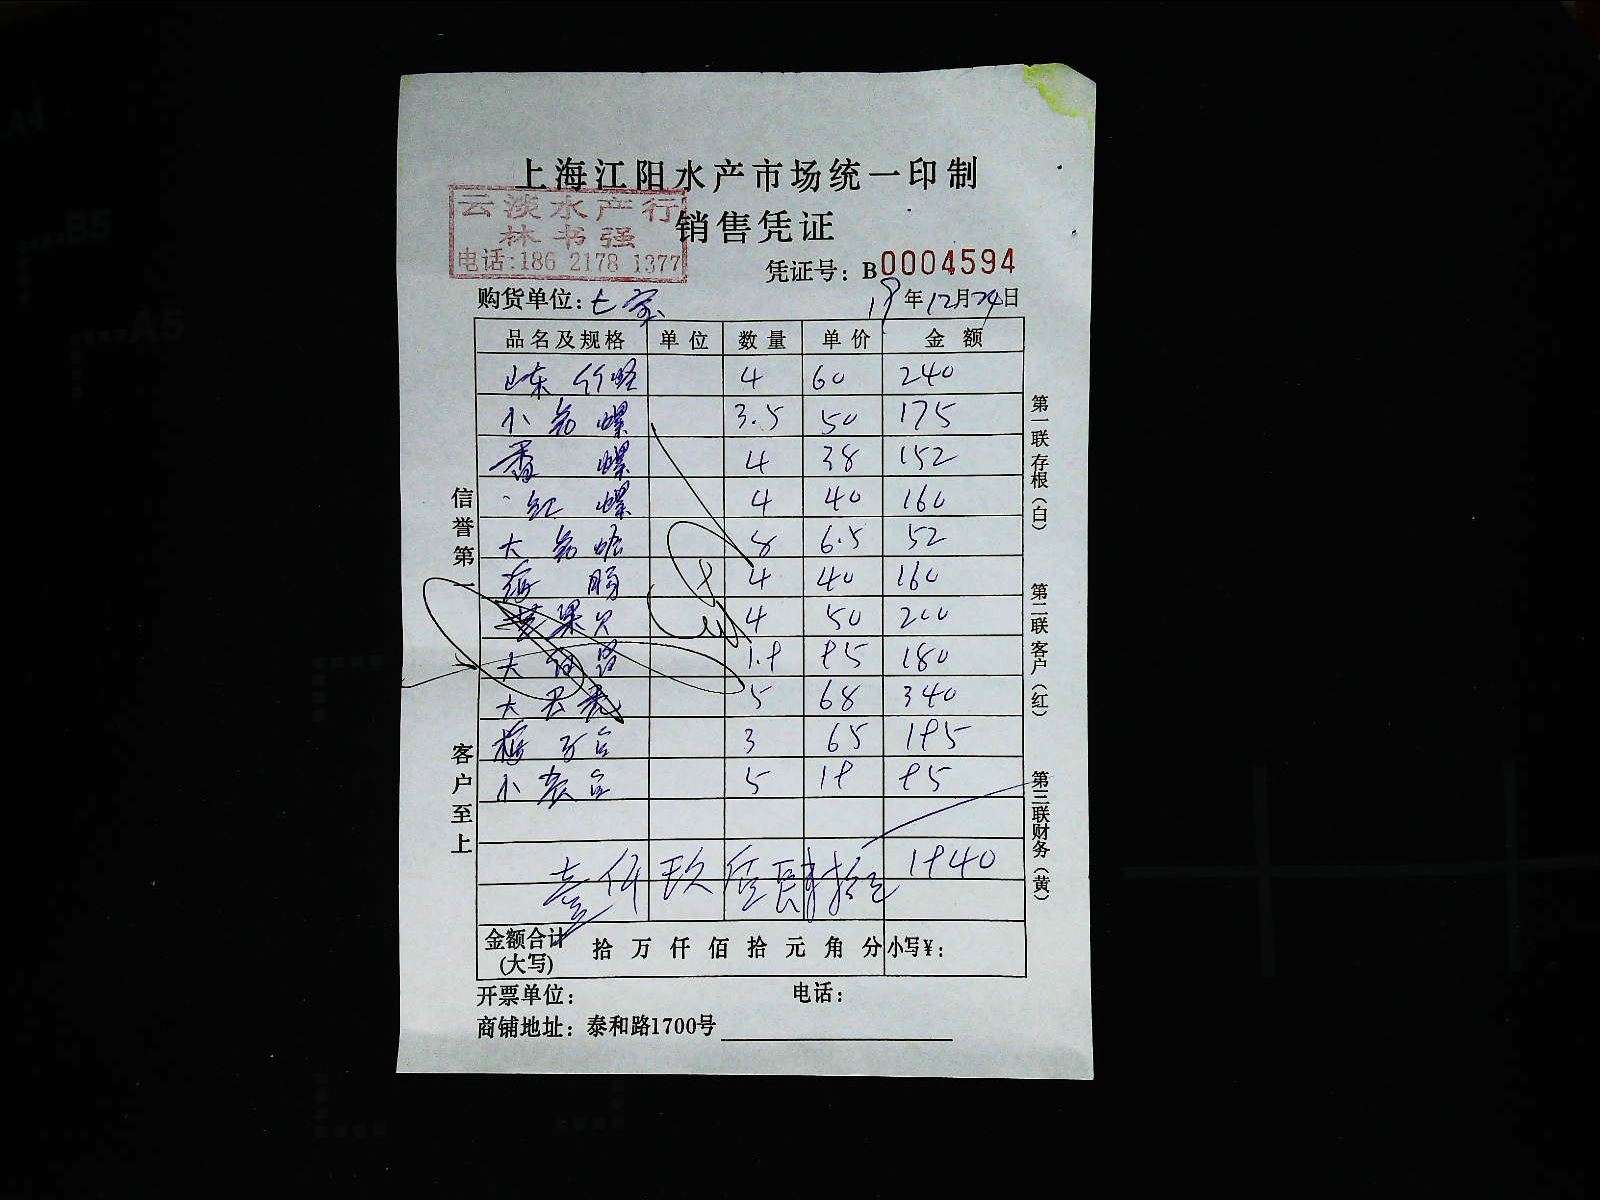 上海江阳水产市场统一印制
销售凭证
云淡水产行
林书强
电话:186 2178 1377
凭证号: B0004594
购货单位: 七家
19年12月24日
品名及规格 单位 数量 单价 金额
山东竹蛏 4 60 240
小 螺 3.5 50 175
香螺 4 38 152
红螺 4 40 160
大 8 6.5 52
海肠 4 40 160
苹果贝 4 50 200
大 1.9 95 180
大 5 68 340
3 65 195
小 5 19 95
壹仟玖佰肆拾元 1940
金额合计(大写) 拾 万 仟 佰 拾 元 角 分 小写¥:
开票单位: 电话:
商铺地址: 泰和路1700号
信誉第一
客户至上
第一联 存根(白)
第二联 客户(红)
第三联 财务(黄)
A4
B5
A5